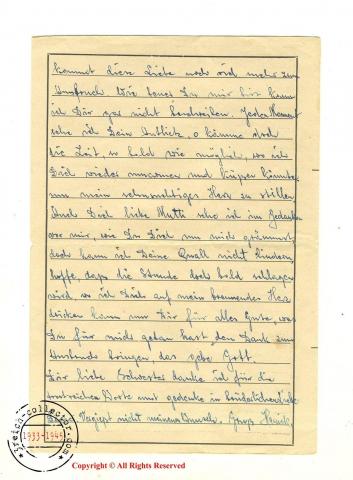 kommt diese Liebe noch viel mehr zum
Ausbruch. Wie teuer Du mir bist kann
ich Dir gar nicht beschreiben. Jeden Moment
sehe ich Dein Antlitz, o käme doch
die Zeit, so bald wie möglich, wo ich
Dich wieder umarmen und küssen könnte
um mein sehnsüchtiges Herz zu stillen
Auch Dich liebe Mutti sehe ich im Gedanken
vor mir, wie Du Dich um mich grämst
doch kann ich Deine Quall nicht lindern
hoffe, dass die Stunde doch bald schlagen
wird wo ich Dich auf mein brennendes Herz
drücken kann um Dir für alles Gute, was
Du für mich getan hast den Dank zum
bringen das gebe Gott.
Dir liebe Schwester danke ich für die
Worte und gedenke in
Vergiesst nicht meinen Wunsch. Gruss
ireich-collector.com
1933-1945
Copyright © All Rights Reserved